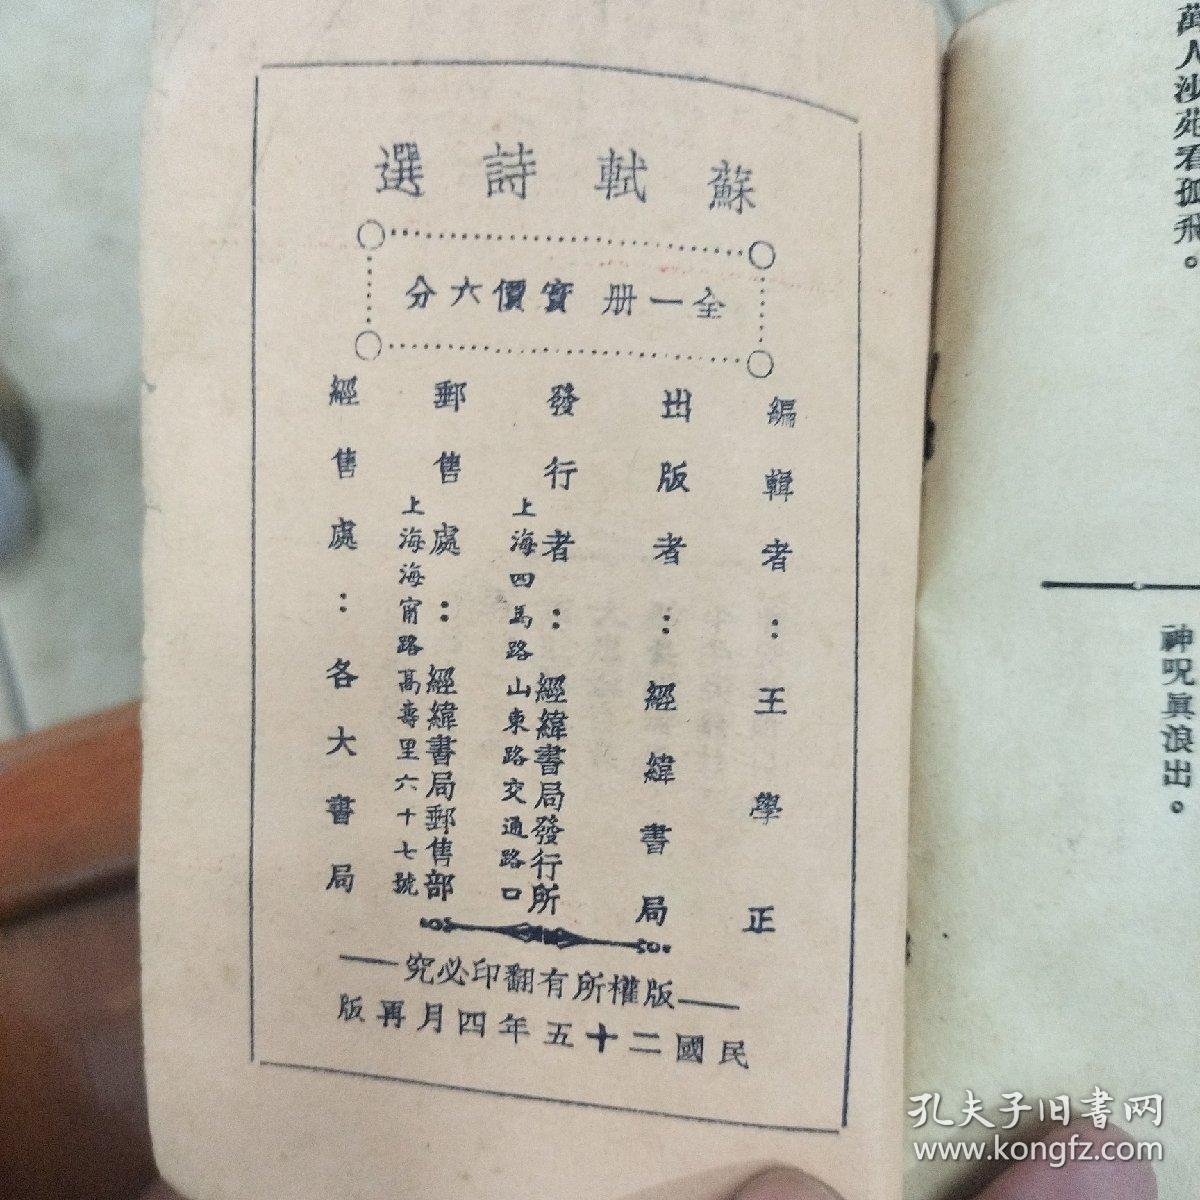 蘇軾詩選
全一册 實價六分
編輯者：王學正
出版者：經緯書局
發行者：經緯書局發行所
上海四馬路山東路交通路口
郵售處：經緯書局郵售部
上海海甯路高壽里六十七號
經售處：各大書局
版權所有翻印必究
民國二十五年四月再版
萬人沙苑看孤飛。
神呪眞浪出。
孔夫子旧书网
www.kongfz.com